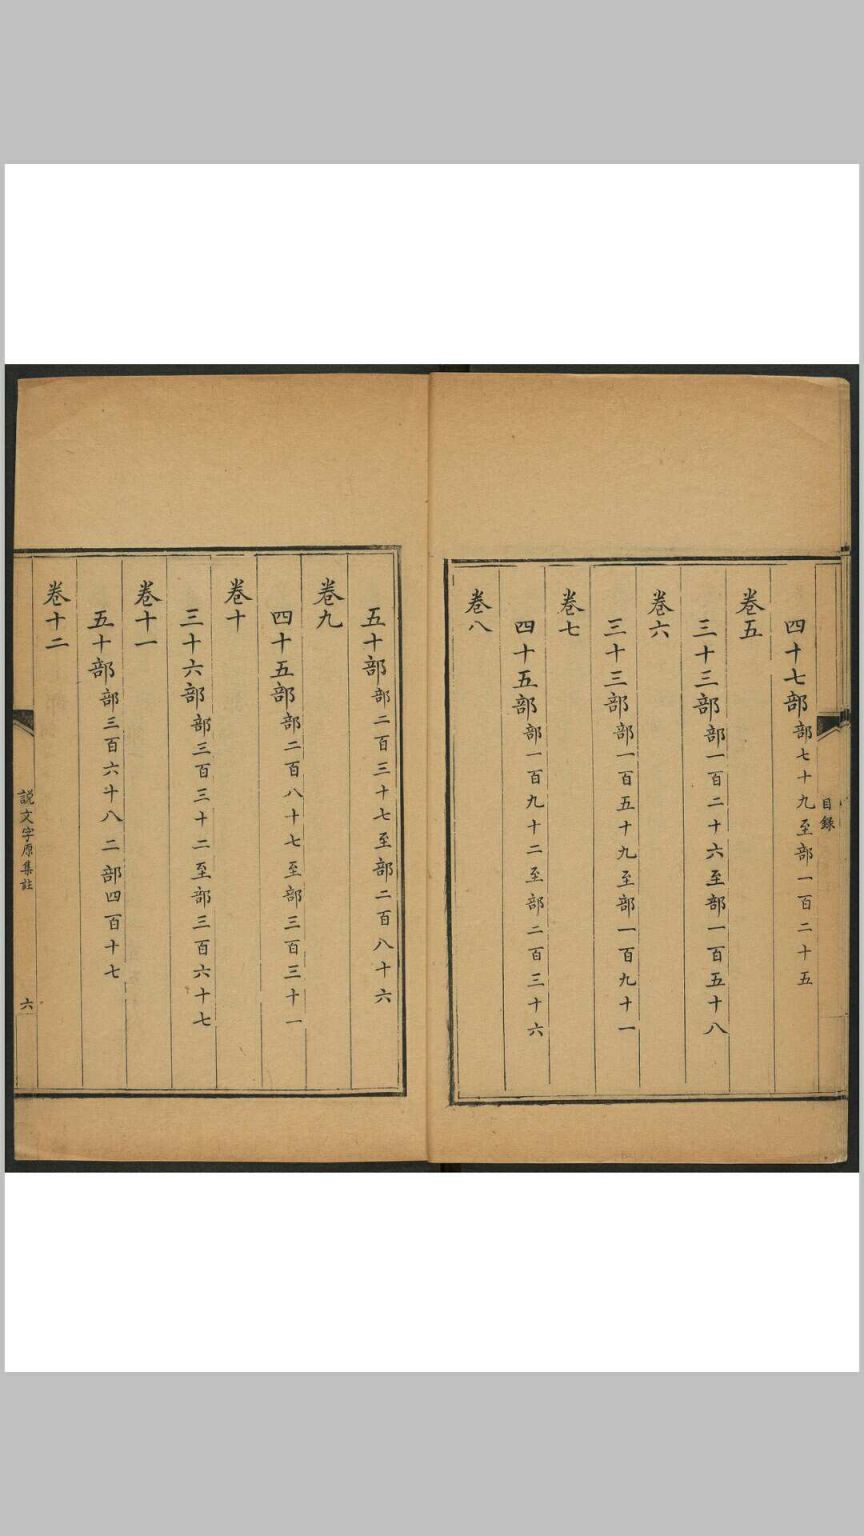 目錄
四十七部部七十九至部一百二十五
卷五
三十三部部一百二十六至部一百五十八
卷六
三十三部部一百五十九至部一百九十一
卷七
四十五部部一百九十二至部二百三十六
卷八
五十部部二百三十七至部二百八十六
卷九
四十五部部二百八十七至部三百三十一
卷十
三十六部部三百三十二至部三百六十七
卷十一
五十部部三百六十八二部四百十七
卷十二
說文字原集註 六